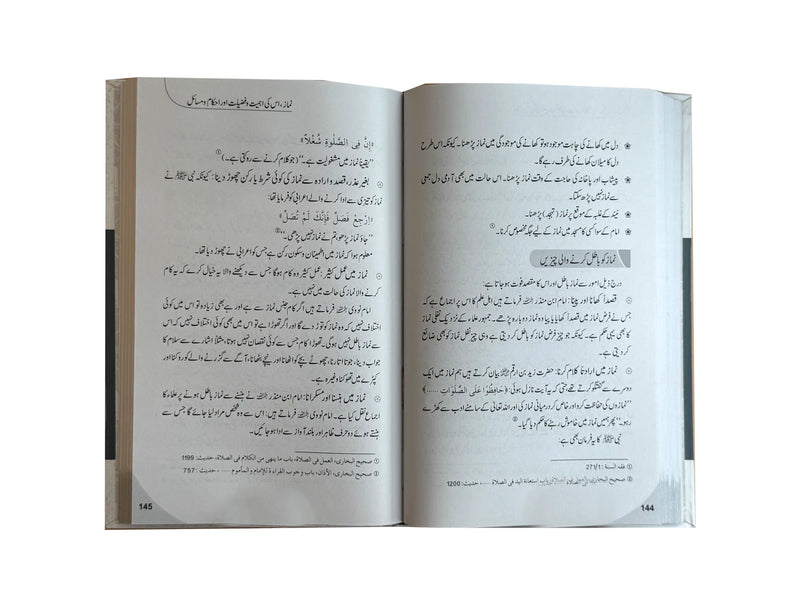 دل میں کھانے کی چاہت موجود ہو تو کھانے کی موجودگی میں نماز پڑھنا۔ کیونکہ اس طرح
دل کا میلان کھانے کی طرف رہے گا۔
پیشاب اور پاخانہ کی حاجت کے وقت نماز پڑھنا۔ اس حالت میں بھی آدمی دل جمعی
سے نماز نہیں پڑھ سکتا۔
نیند کے غلبہ کے موقع پر نماز (تہجد) پڑھنا۔
امام کے سوا کسی کا مسجد میں نماز کے لیے جگہ مخصوص کرنا۔ ①
نماز کو باطل کرنے والی چیزیں
درج ذیل امور سے نماز باطل اور اس کا مقصد فوت ہو جاتا ہے:
قصداً کھانا اور پینا: امام ابن منذر رحمہ اللہ فرماتے ہیں اہل علم کا اس پر اجماع ہے کہ
جس نے فرض نماز میں قصداً کھایا یا پیا وہ نماز دوبارہ پڑھے۔ جمہور علماء کے نزدیک نفلی نماز
کا بھی یہی حکم ہے۔ کیونکہ جو چیز فرض نماز کو باطل کر دیتی ہے وہی چیز نفل نماز کو بھی ضائع
کر دیتی ہے۔
نماز میں ارادتاً کلام کرنا: حضرت زید بن ارقم رضی اللہ عنہ بیان کرتے ہیں ہم نماز میں ایک
دوسرے سے گفتگو کرتے تھے حتیٰ کہ یہ آیت نازل ہوئی: ﴿حَافِظُوْا عَلَى الصَّلَوَاتِ ……﴾
”نمازوں کی حفاظت کرو اور خاص کر درمیانی نماز کی اور اللہ تعالیٰ کے سامنے ادب سے کھڑے
رہو۔“ پھر ہمیں نماز میں خاموش رہنے کا حکم دیا گیا۔ ②
نبی ﷺ کا یہ فرمان بھی ہے:
① فقه السنة : 271/1
② صحيح البخاري، استعانة اليد في الصلاة ....، حديث: 1200
144
نماز، اس کی اہمیت و فضیلت اور احکام و مسائل
«اِنَّ فِی الصَّلٰوةِ شُغْلاً»
”یقیناً نماز میں مشغولیت ہے۔“ (جو کلام کرنے سے روکتی ہے۔) ①
بغیر عذر، قصد و ارادہ سے نماز کی کوئی شرط یا رکن چھوڑ دینا: کیونکہ نبی ﷺ نے
نماز کو تیزی سے ادا کرنے والے اعرابی کو فرمایا تھا:
«اِرْجِعْ فَصَلِّ فَإِنَّكَ لَمْ تُصَلِّ»
”جاؤ نماز پڑھو، تم نے نماز نہیں پڑھی۔“ ②
معلوم ہوا کہ نماز میں اطمینان و سکون رکن ہے جس کو اعرابی نے چھوڑ دیا تھا۔
نماز میں عمل کثیر: عمل کثیر وہ کام ہوگا جس سے دیکھنے والا یہ خیال کرے کہ یہ کام
کرنے والا نماز کی حالت میں نہیں ہے۔
امام نووی رحمہ اللہ فرماتے ہیں اگر کام جنس نماز سے ہے اور ہے بھی زیادہ تو اس میں کوئی
اختلاف نہیں کہ وہ نماز کو توڑ دے گا اور اگر تھوڑا ہے تو اس میں بھی کوئی اختلاف نہیں کہ اس
سے نماز باطل نہیں ہوگی۔ تھوڑا کام جس سے کوئی نقصان نہیں ہوتا، مثلاً اشارے سے سلام کا
جواب دینا، جوتا اتارنا، چھوٹے بچے کو اٹھانا اور نیچے بٹھانا، آگے سے گزرنے والے کو روکنا اور
کپڑے میں تھوکنا وغیرہ ہے۔
نماز میں ہنسنا اور مسکرانا: امام ابن منذر رحمہ اللہ نے ہنسنے سے نماز باطل ہونے پر علماء کا
اجماع نقل کیا ہے۔ امام نووی رحمہ اللہ فرماتے ہیں: اس سے وہ شخص مراد لیا جائے گا جس سے
ہنستے ہوئے دو حرف ظاہر اور بلند آواز سے ادا ہو جائیں۔
① صحيح البخاري، العمل في الصلاة، باب ما ينهى من الكلام في الصلاة، حديث: 1199
② صحيح البخاري، الأذان، باب وجوب القراءة للإمام و المأموم ....، حديث: 757
145